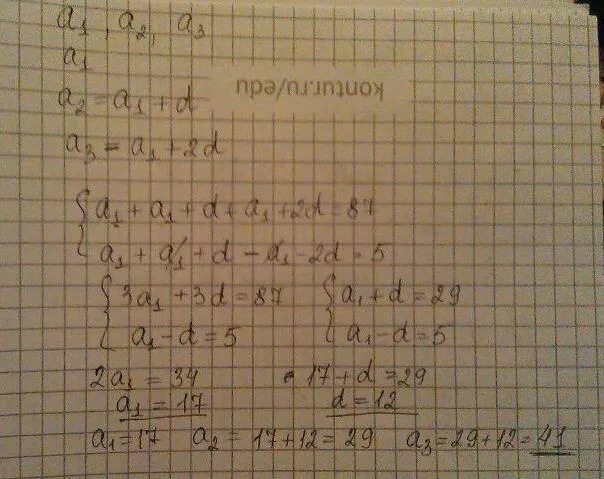 a₁, a₂, a₃
a₁
a₂ = a₁ + d
kontur.ru/edu
a₃ = a₁ + 2d
{ a₁ + a₁ + d + a₁ + 2d = 87
a₁ + a₁ + d - a₁ - 2d = 5
{ 3a₁ + 3d = 87 { a₁ + d = 29
a₁ - d = 5 a₁ - d = 5
2a₁ = 34 17 + d = 29
a₁ = 17 d = 12
a₁ = 17 a₂ = 17 + 12 = 29 a₃ = 29 + 12 = 41